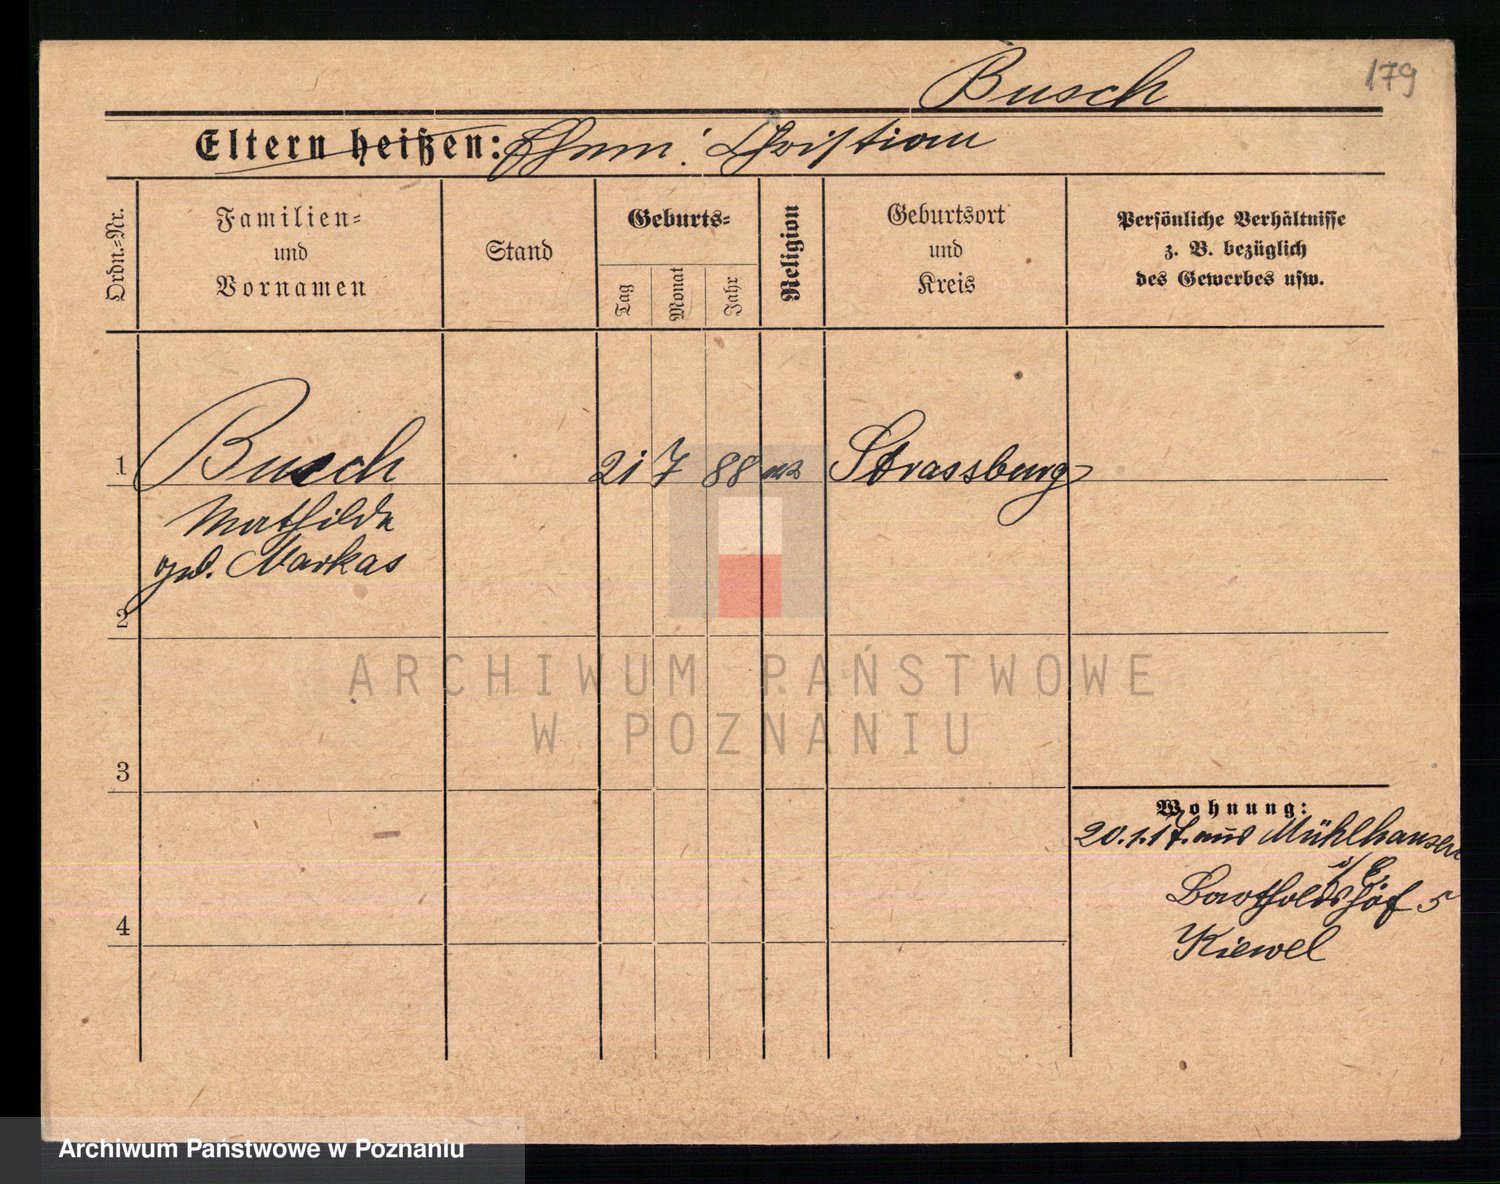 Busch
179
Eltern heißen: Ehem: Christian
Ordn.-Nr.
Familien-
und
Vornamen
Stand
Geburts-
Tag
Monat
Jahr
Religion
Geburtsort
und
Kreis
Persönliche Verhältnisse
z. B. bezüglich
des Gewerbes usw.
1 Busch 21 7 88 Strassburg
Mathilde
geb. Markas
2
3
4
Wohnung:
20.1.17. aus Mühlhausen
i/E.
Bartholdshof 5
Kiewel
ARCHIWUM PAŃSTWOWE
W POZNANIU
Archiwum Państwowe w Poznaniu